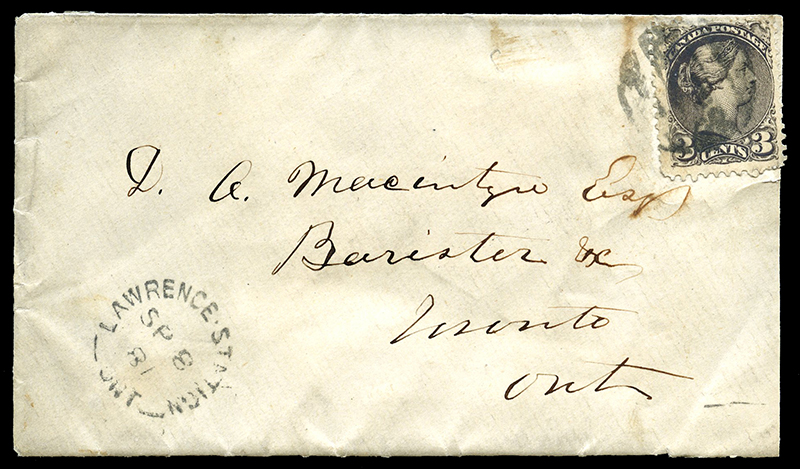 CANADA POSTAGE
3 CENTS 3
D. A. Macintyre Esq
Barister &c
Toronto
Ont
LAWRENCE·STATION
SP 8
81
ONT